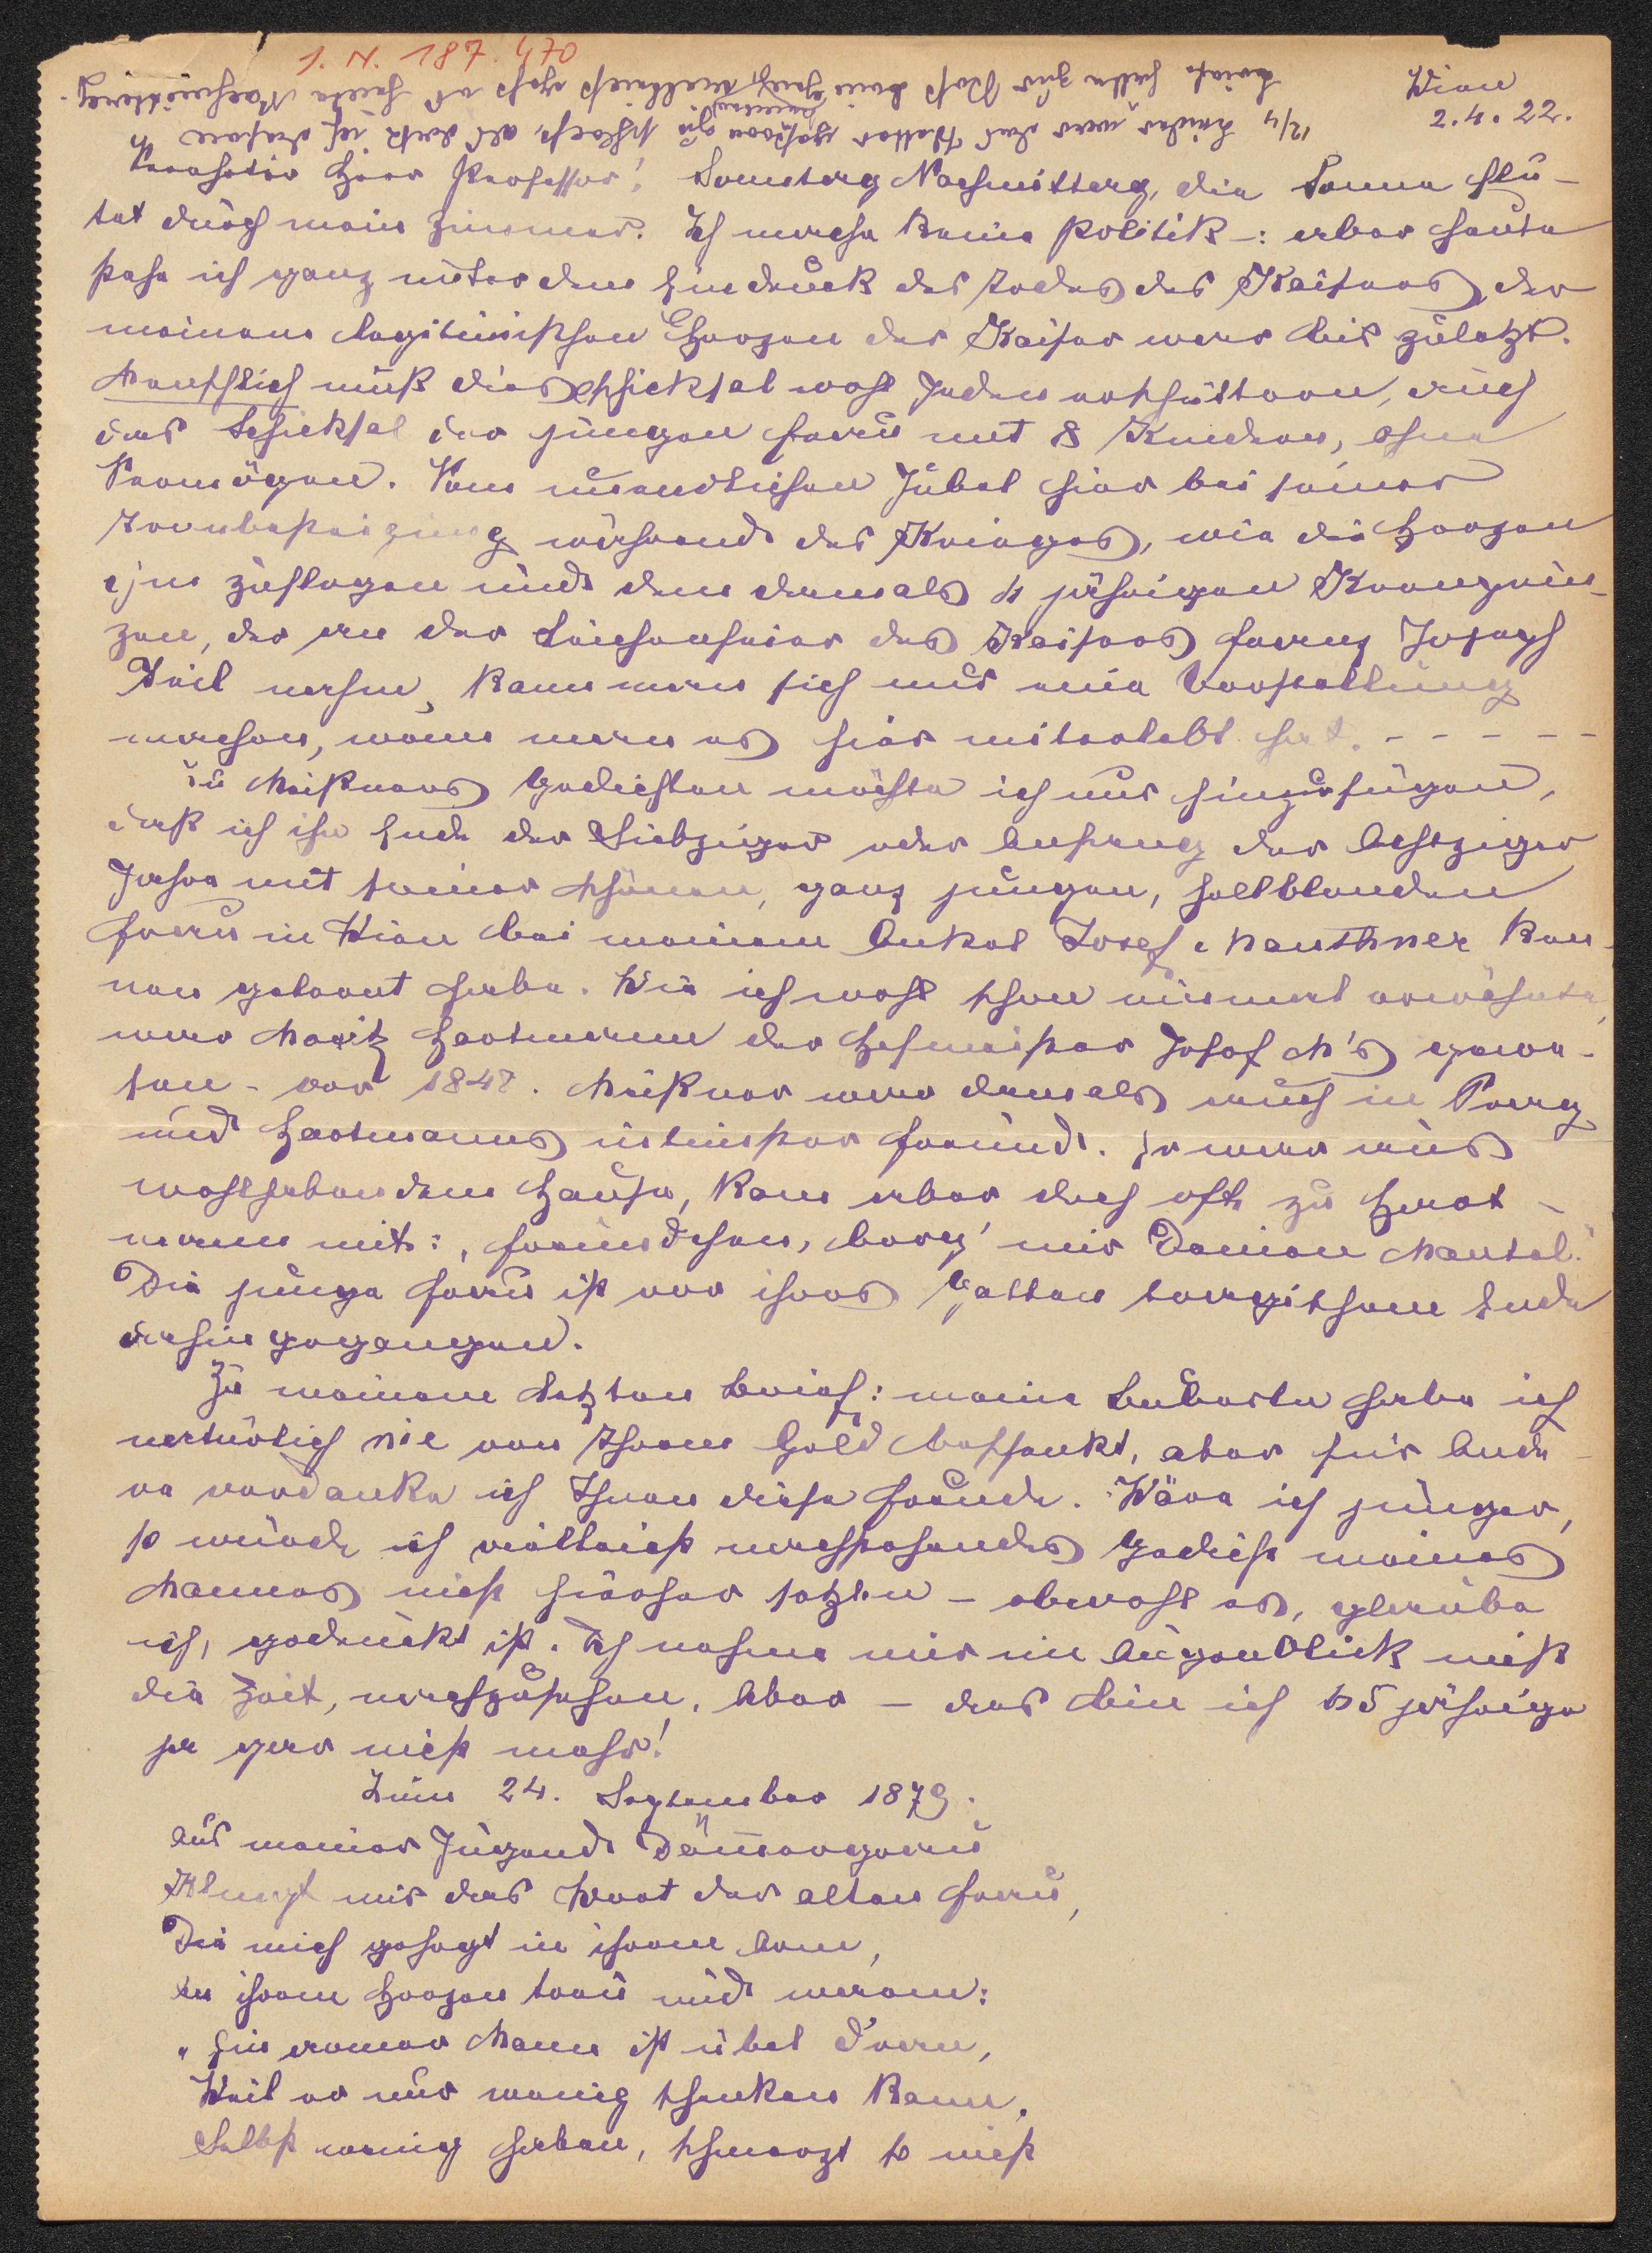 I. N. 187.470
Wien
2.4.22.
12/4 Leider war das Wetter gestern zu schlecht, als daß ich diesen
Brief hätte zur Post
Verehrter Herr Professor! Samstag Nachmittag, die Sonne flu-
tet durch mein Zimmer. Ich mache keine Politik –: aber heute
stehe ich ganz unter dem Eindruck des Todes des Kaisers, der
meinem legitimistischen Herzen der Kaiser war bis zuletzt.
Menschlich muß dies Schicksal wohl Jeden erschüttern, auch
das Schicksal der jungen Frau mit 8 Kindern, ohne
Vermögen. Vom unendlichen Jubel hier bei seiner
Thronbesteigung während des Krieges, wie die Herzen
ihm zuflogen und dem damals 4 jährigen Kronprin-
zen, der an der Leichenfeier des Kaisers Franz Joseph
Teil nahm, kann man sich nur eine Vorstellung
machen, wenn man es hier miterlebt hat. – – – – –
Zu Meißners Gedichten möchte ich nur hinzufügen,
daß ich ihn Ende der Siebziger oder Anfang der Achtziger
Jahre mit seiner schönen, ganz jungen, hellblonden
Frau in Wien bei meinem Onkel Josef Mauthner ken-
nen gelernt habe. Wie ich wohl schon einmal erwähnte,
war Moritz Hartmann der Hofmeister Josef M's gewe-
sen – vor 1848. Meißner war damals auch in Prag
und Hartmanns intimster Freund. Er war aus
wohlhabendem Hause, kam aber doch oft zu Hart-
mann mit: „Freundchen, borg' mir Deinen Mantel."
Die junge Frau ist vor ihres Gatten tragischem Ende
dahingegangen.
Zu meinem letzten Brief: meine habe ich
natürlich nie von Ihrem Geld beschenkt, aber für Ande-
re verdanke ich Ihnen diese Freude. Wäre ich jünger,
so würde ich vielleicht nachstehendes Gedicht meines
Mannes nicht hierher setzen – obwohl es, glaube
ich, gedruckt ist. Ich nehme mir im Augenblick nicht
die Zeit, nachzusehen. Aber – das bin ich 65 jährige
ja gar nicht mehr!
Zum 24. September 1879.
Aus meiner Jugend Dämmergrau
Klingt mir das Wort der alten Frau,
Die mich gehegt in ihrem Arm,
In ihrem Herzen treu und warm:
„Ein armer Mann ist übel dran,
Weil er nur wenig schenken kann.
Selbst wenig haben, schmerzt so nicht